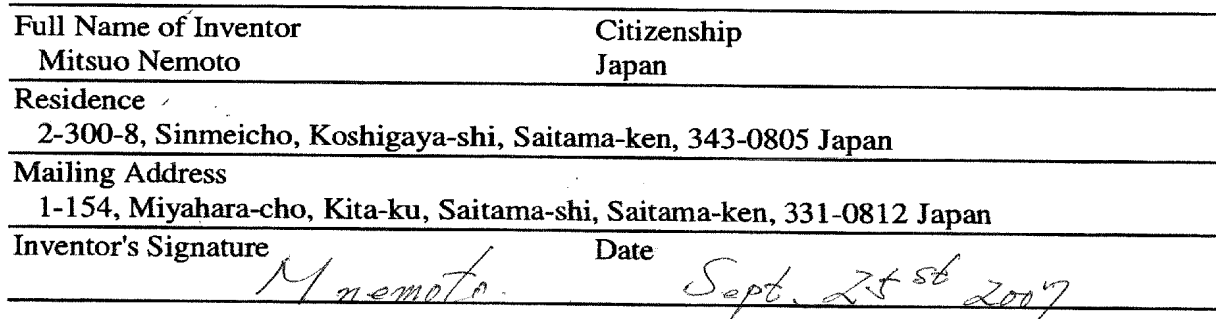 Full Name of Inventor Citizenship
Mitsuo Nemoto Japan
Residence
2-300-8, Sinmeicho, Koshigaya-shi, Saitama-ken, 343-0805 Japan
Mailing Address
1-154, Miyahara-cho, Kita-ku, Saitama-shi, Saitama-ken, 331-0812 Japan
Inventor's Signature M nemoto. Date Sept. 25st 2007